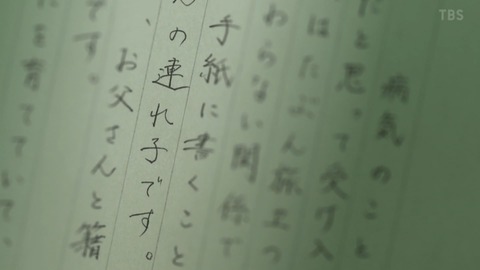 TBS
病気のこと
たと思って受け入
はたぶん
わらない関係で
手紙に書くこと
の連れ子です。
、お父さんと籍
です。
を育てていて、